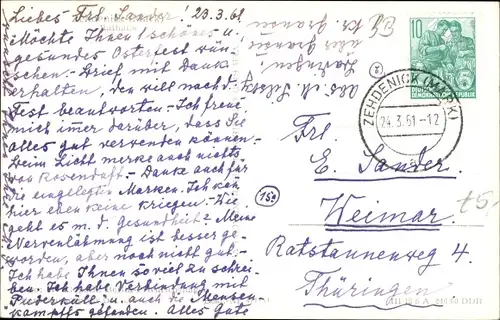 Liebes Frl. Sander! 23.3.61
Möchte Ihnen schönes u.
gesundes Osterfest wün-
schen. Brief mit Dank
erhalten, den will nach d.
Fest beantworten. Ich freue
mich imer darüber, dass Sie
alles gut verwenden können.
Beim Licht merke auch nichts
von Rosenduft. Danke auch für
die eingelegten Marken. Ich kan
hier eben keine kriegen. Wie
geht es m. d. Gesundheit? Meine
Nervenlähmung ist besser ge-
worden, aber noch nicht gut.
Ich habe Ihnen so viel zu schrei-
ben. Ich habe Verbindung mit
Puderküll u. auch die
gefunden. Alles Gute
10
DEUTSCHE DEMOKRATISCHE REPUBLIK
ZEHDENICK (MARK)
24.3.61-12
a
Frl.
E. Sander
Weimar.
Ratstannenweg 4
Thüringen
15a
t5.-
DDR